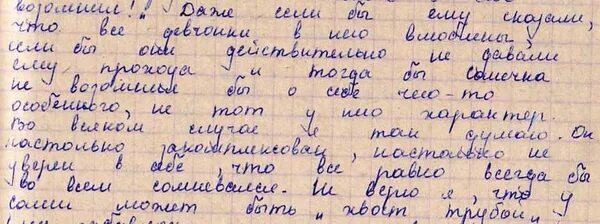 возомнит!" Даже если бы ему сказали,
что все девчонки в него влюблены,
если бы они действительно не давали
ему прохода и тогда бы Сашечка
не возомнил бы о себе чего-то
особенного, не тот у него характер.
Во всяком случае я так думаю. Он
настолько закомплексован, настолько не
уверен в себе, что все равно всегда бы
во всем сомневался. Не верю я, что у
Саши может быть „хвост трубой" у